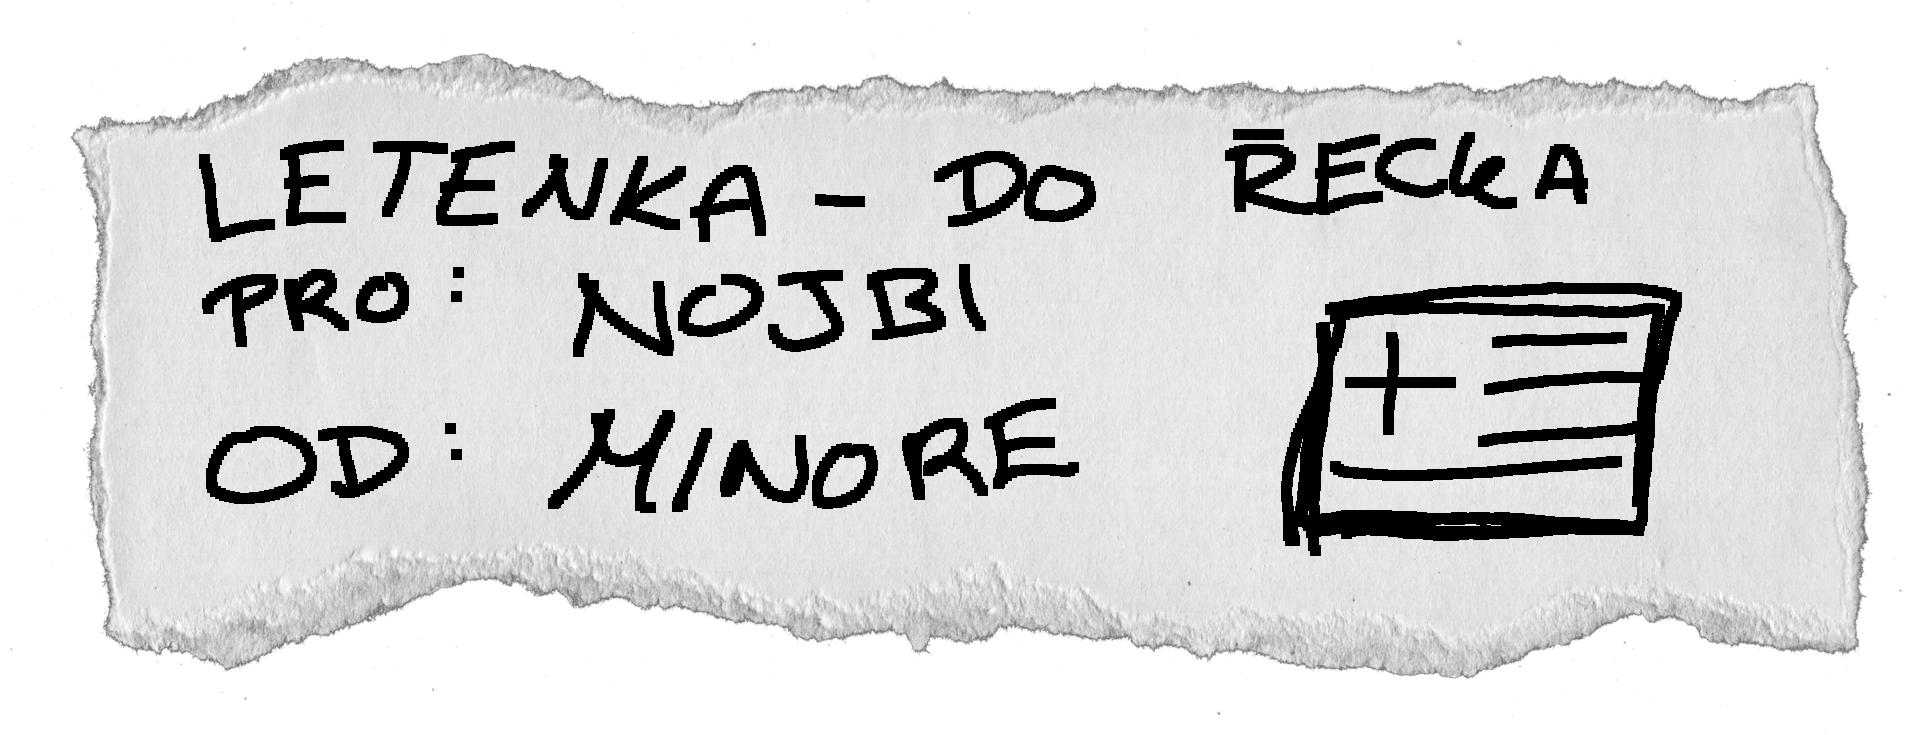 LETENKA - DO ŘECKA
PRO: NOJBI
OD: MINORE